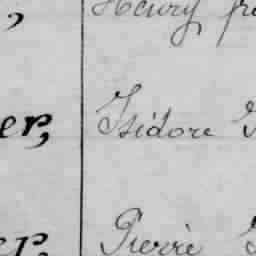 , Henry
er, Isidore
er, Pierre